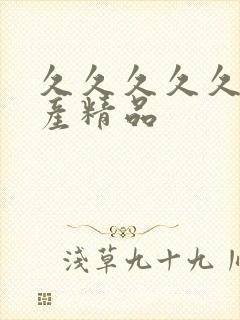 久久久久久
産精品
浅草九十九